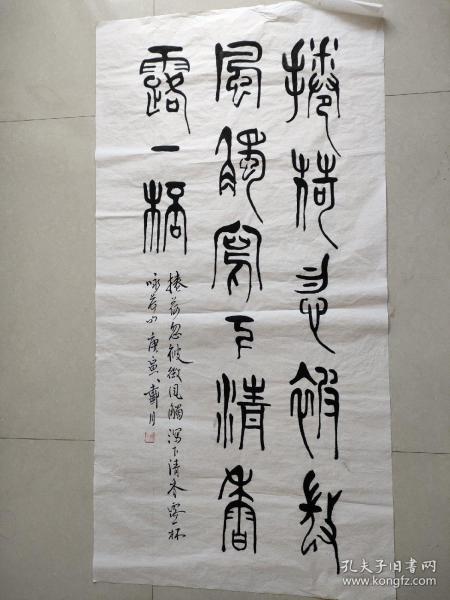 捲荷忽被微
風觸寫下清香
露一桮
捲荷忽被微風觸瀉下清香露一杯
咏荷
庚寅
戴月
孔夫子旧书网
www.kongfz.com